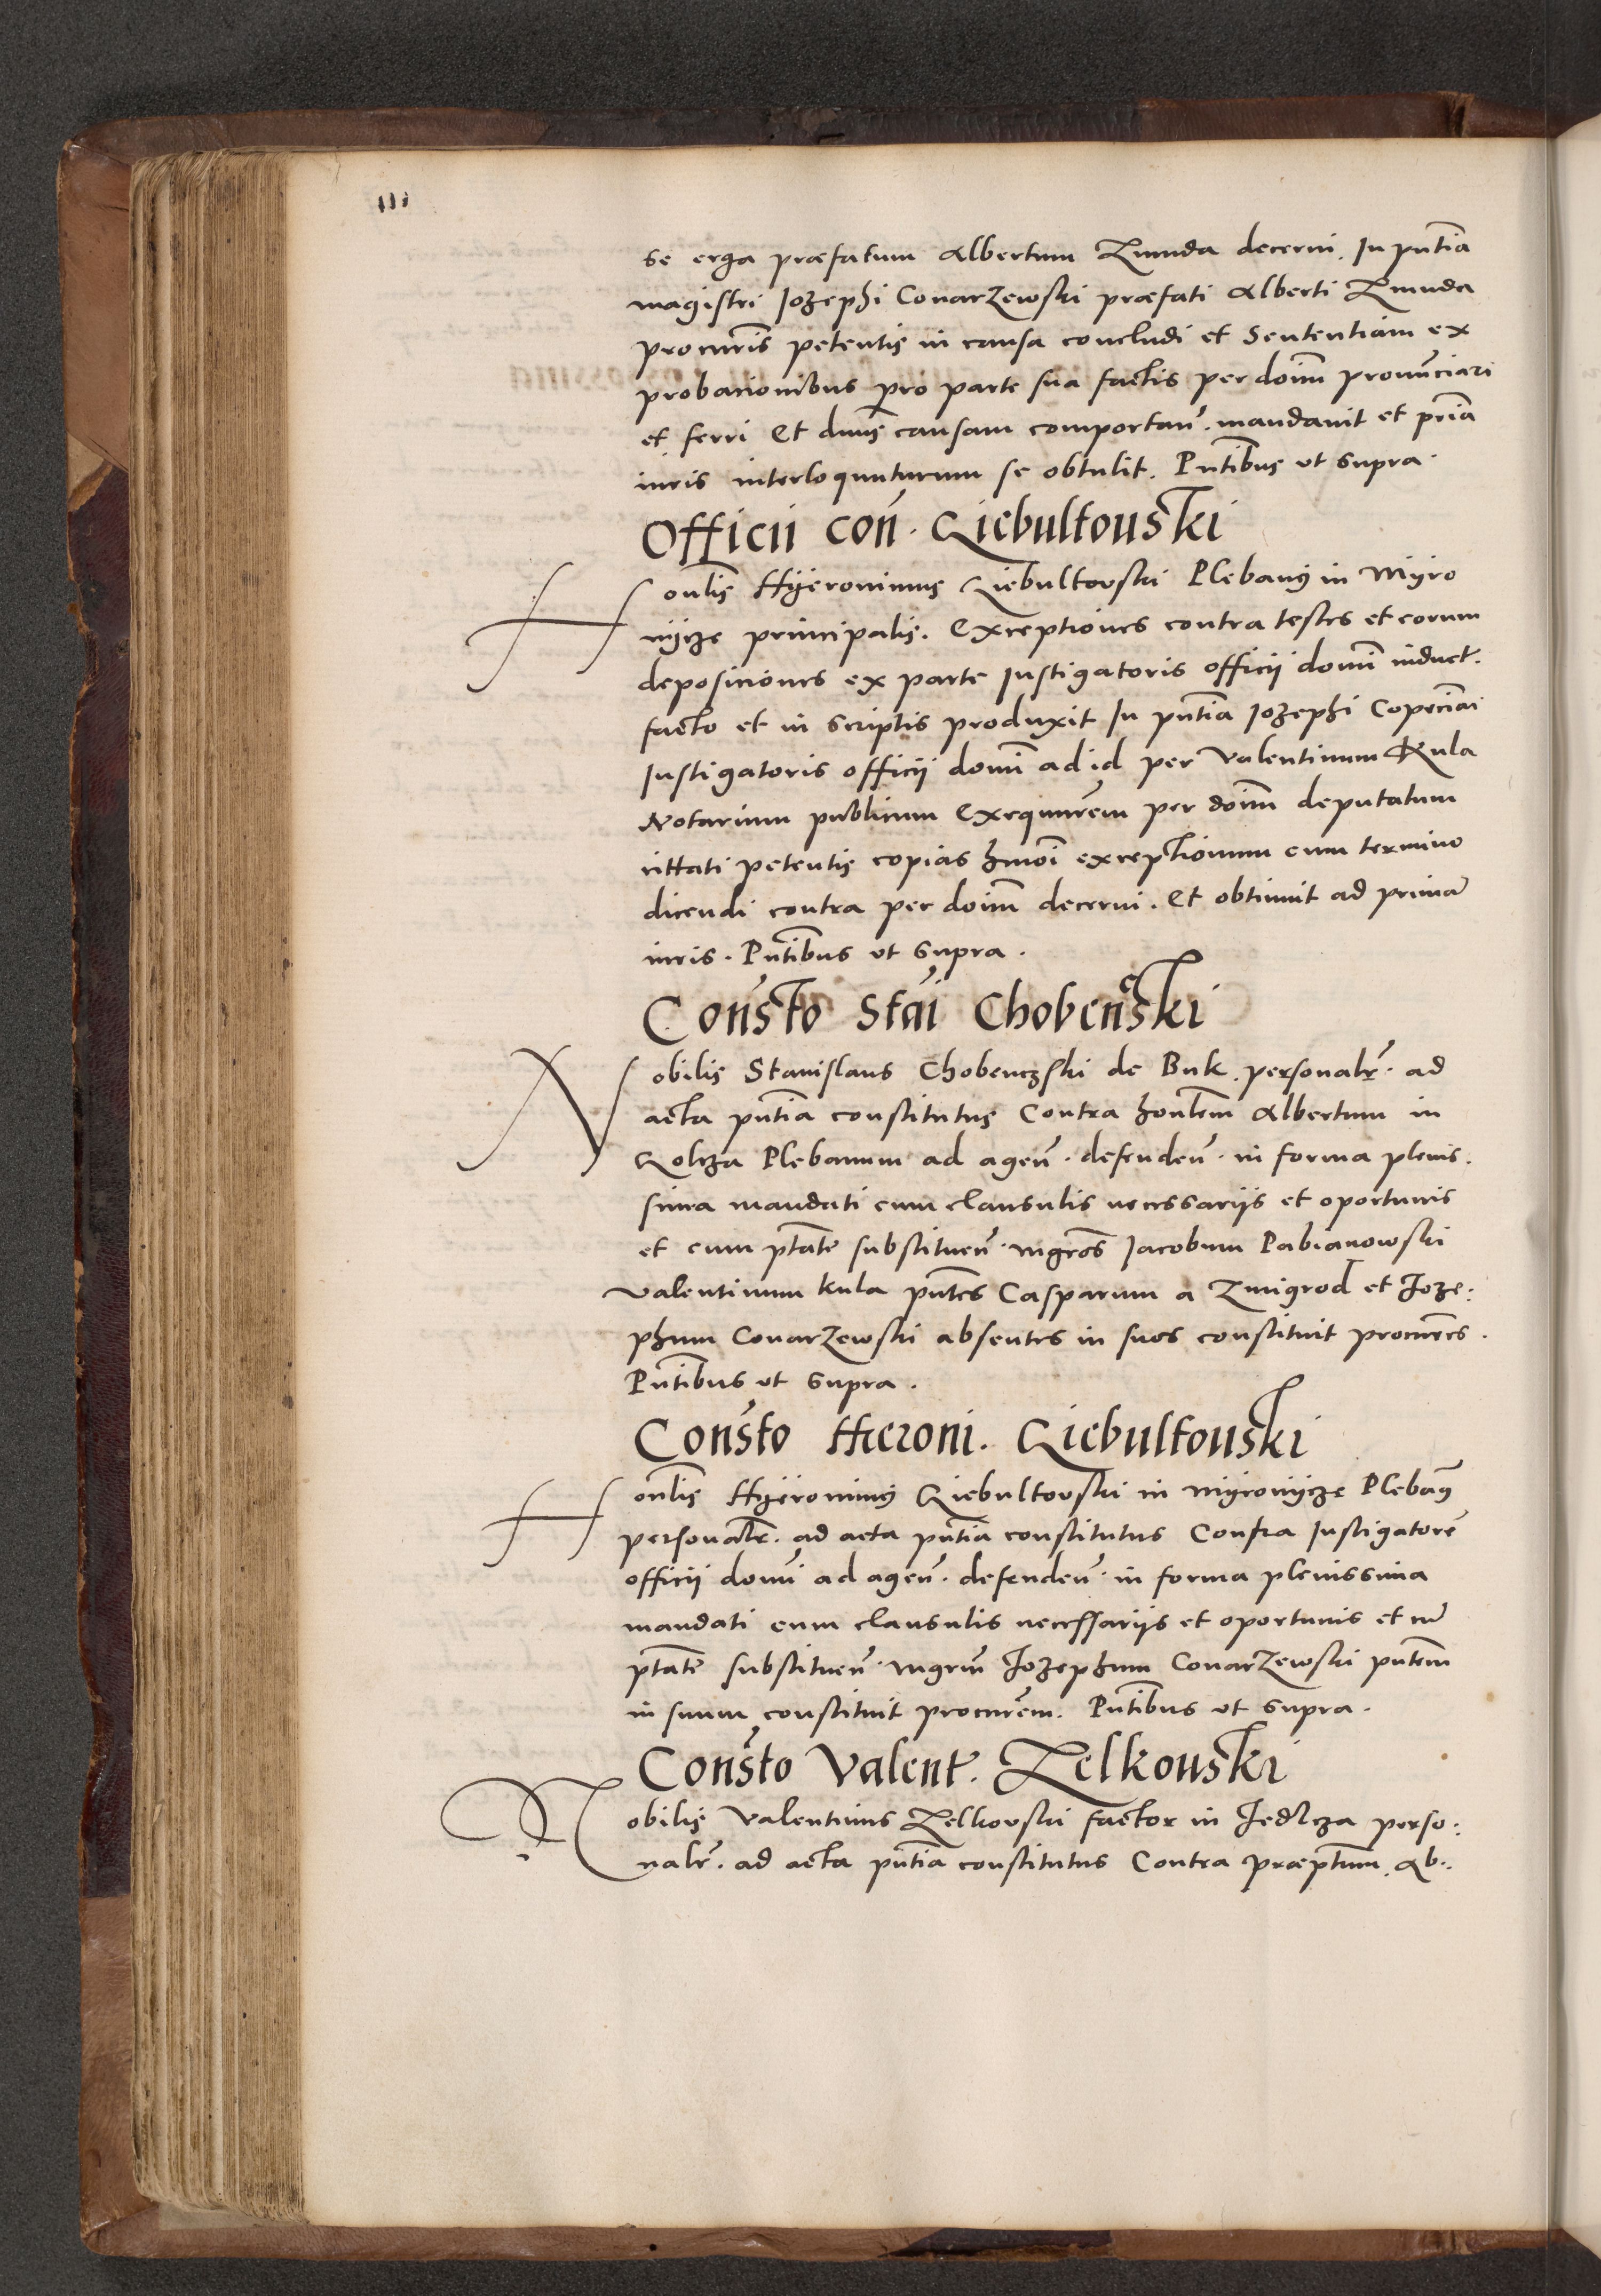 se erga præfatum Albertum Zmuda decerni. In pñtia
magistri Jozephi Conarzewski præfati Alberti Zmuda
procuris̃ petentis in causa concludi et Sententiam ex
probacionibus pro parte sua factis per dom̃ pronunciari
et ferri Et dñus causam comportañ. mandavit et prĩa
iuris interloquuturum se obtulit. Pñtibus ut supra.
Officii coñ. Liebultouski
Honlis̃ Hyeronimus Liebultovski Plebanus in Myro
nycze principalis. Exceptiones contra testes et eorum
deposiciones ex parte Instigatoris officii domĩ induct.
facto et in scriptis produxit In pñtia Jozephi Copeciaĩ
Instigatoris officii domĩ ad id per Valentinum Kula
Notarium publicum Exequurẽm per dom̃ deputatum
cittati petentis copias hmoĩ exceptionum cum termino
dicendi contra per dom̃ decerni. Et obtinuit ad primã
iuris. Pñtibus ut supra.
Consto Stãi Chobenski
Nobilis Stanislaus Chobenczski de Buk. personalr̃. ad
acta pñtia constitutus Contra honlem̃ Albertum in
Lolcza Plebanum ad agenñ. defendenñ. in forma plenis.
sima mandati cum clausulis necessariis et oportunis
et cum ptatẽ substituenñ. mgros̃ Jacobum Pabianowski
Valentinum Kula pñtes Casparum a Zmigrod et Joze:
phum Conarzewski absentes in suos constituit procurẽs.
Pñtibus ut supra.
Consto Hieroni. Liebultouski
Honlis̃ Hyeronimus Liebultovski in Myronycze Plebanus
personalr̃. ad acta pñtia constitutus Contra Instigatorẽ
officii domĩ ad agenñ. defendenñ. in forma plenissima
mandati cum clausulis necessariis et oportunis et cũ
ptatẽ substituenñ. mgrum̃ Jozephum Conarzewski pñtem
in suum constituit procurẽm. Pñtibus ut supra.
Consto Valent. Zelkouski
Nobilis Valentinus Zelkovski factor in Jedlcza perso:
nalr̃. ad acta pñtia constitutus Contra præptum. Ab: